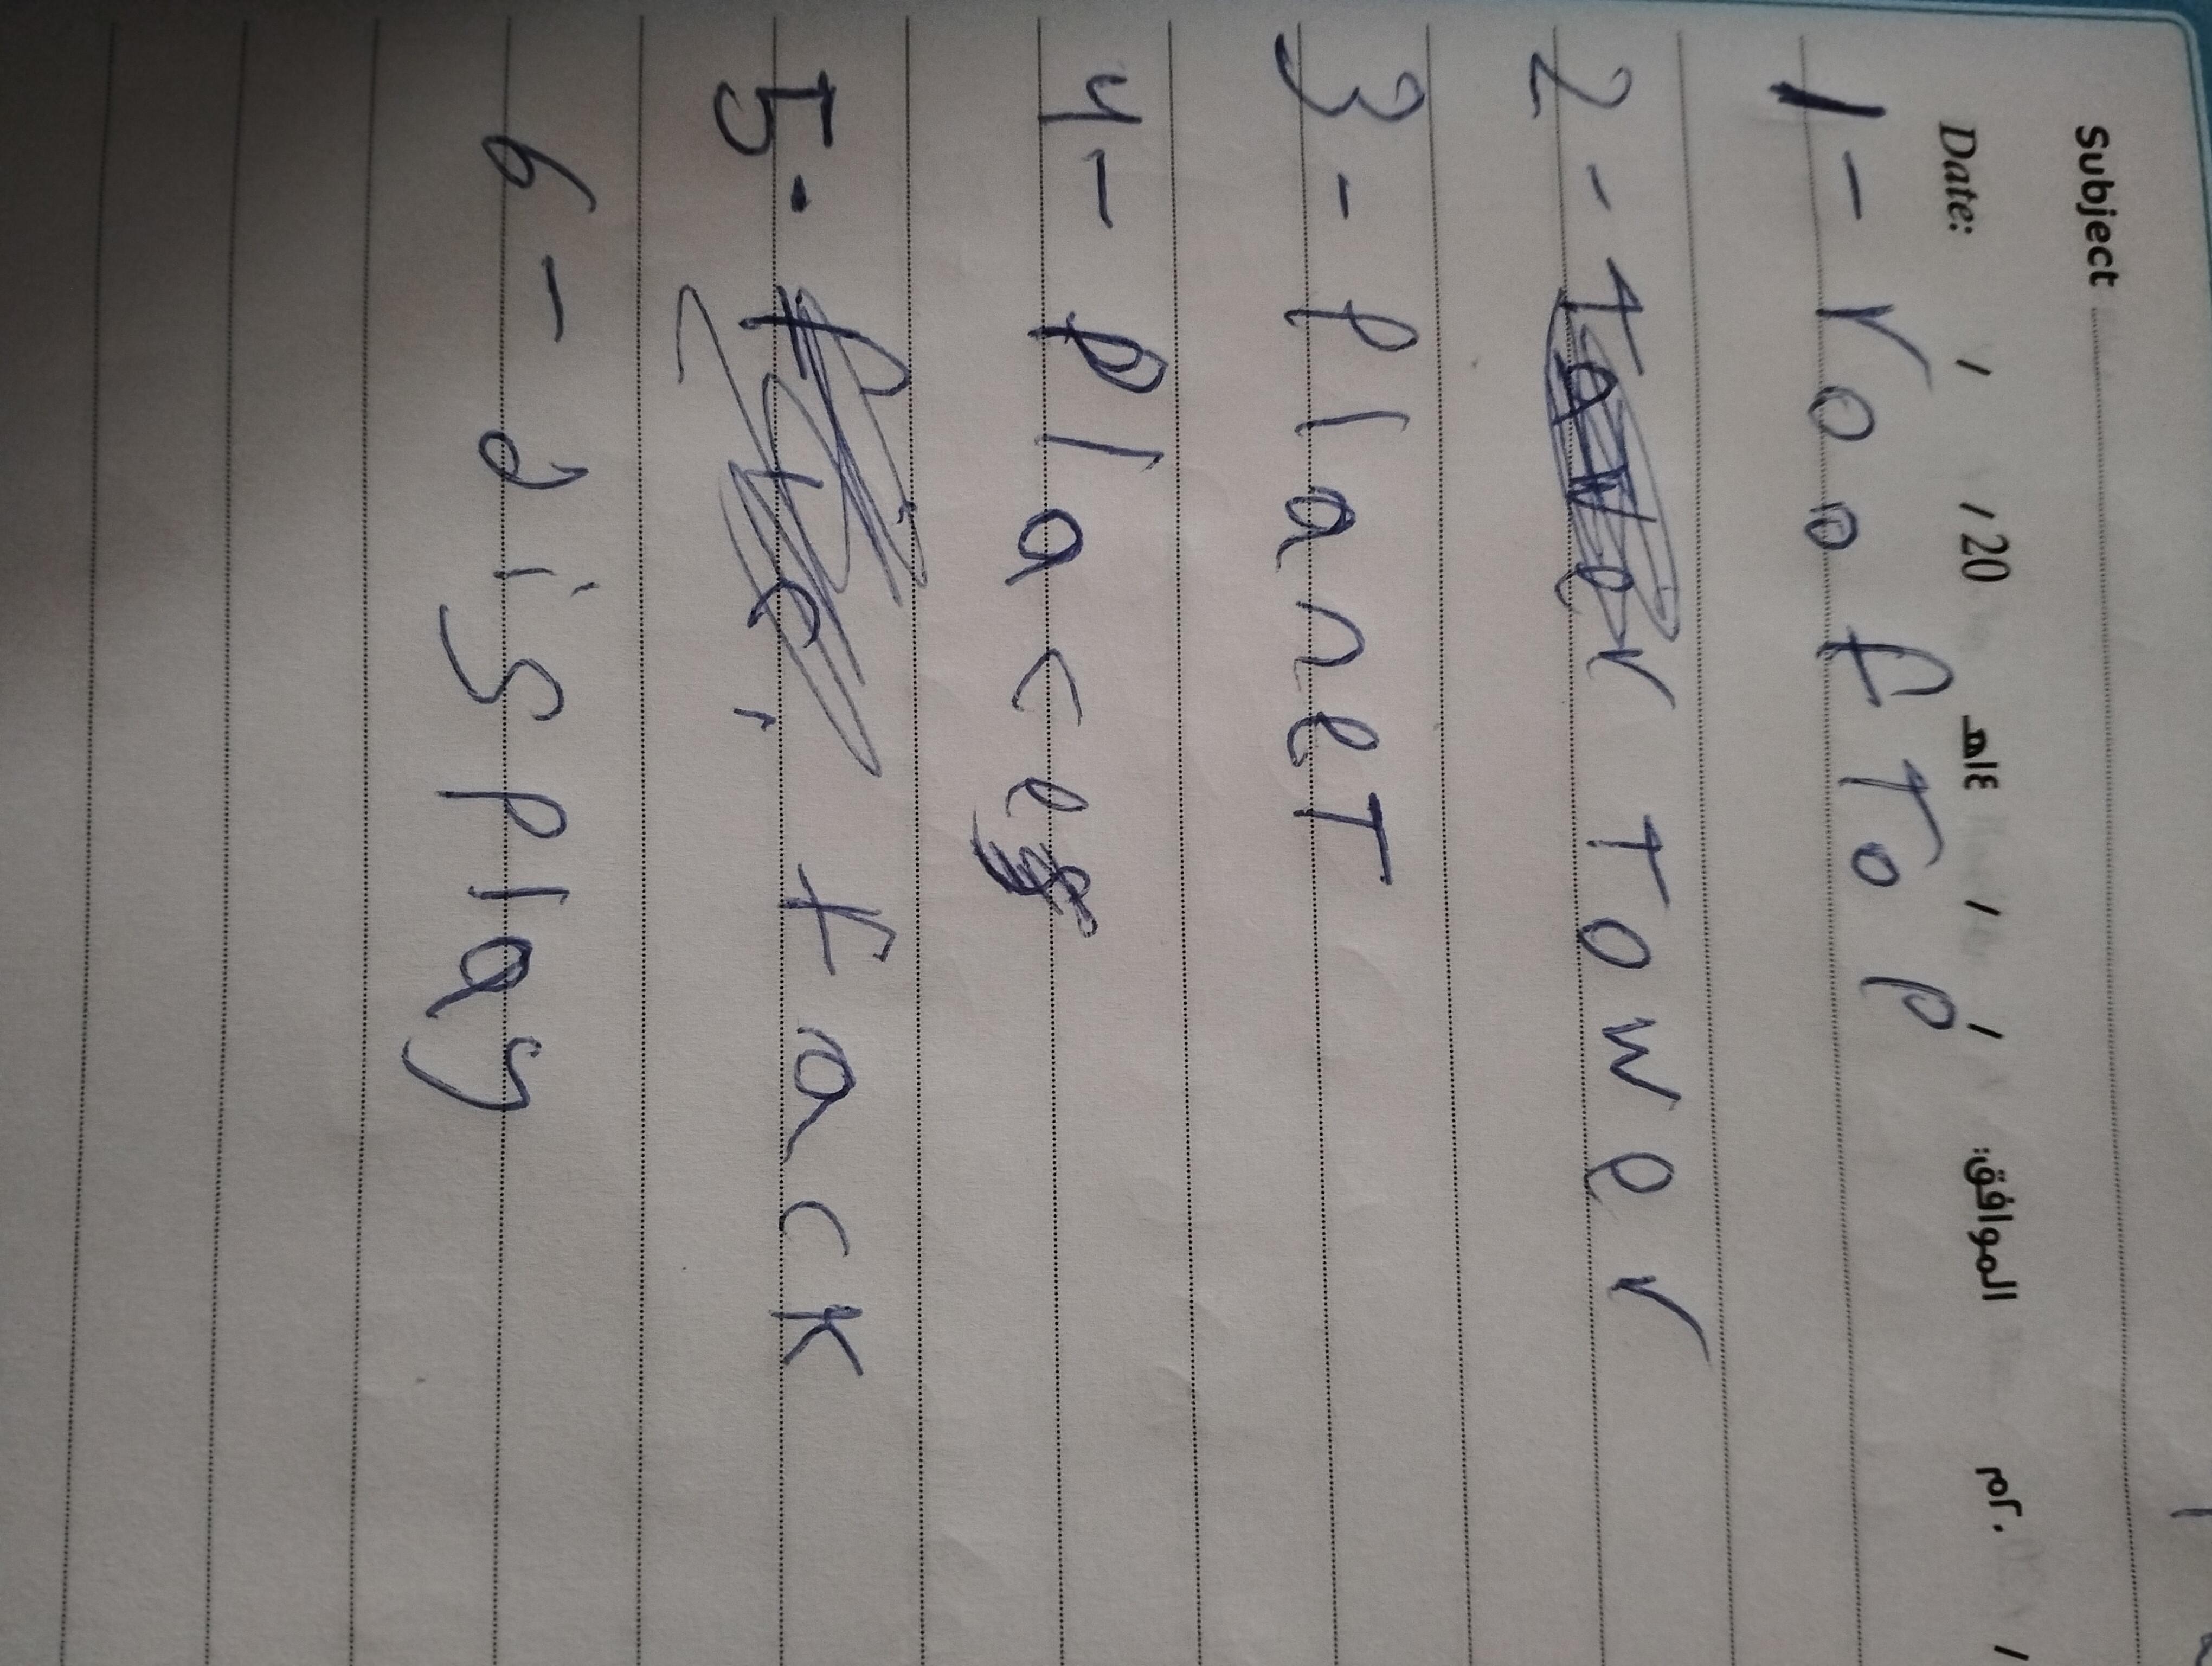 Subject
Date: / /20 الموافق: / / ١٤هـ
1- roofTop
2- Tower
3- planeT
4- place
5. fack
6- display